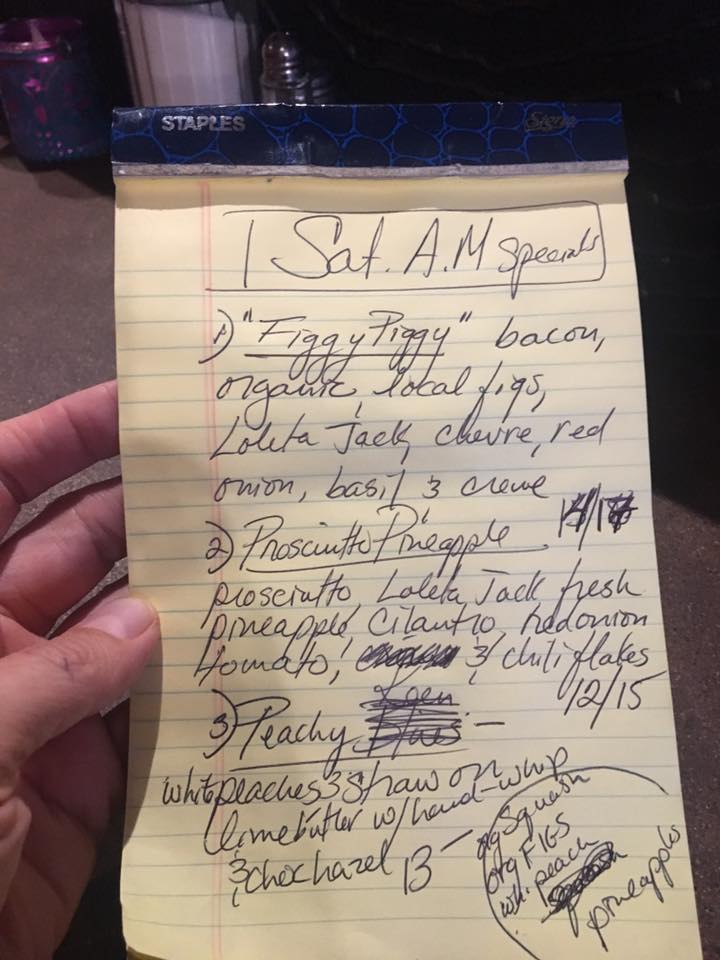 STAPLES
1 Sat. A.M Specials
1) "Figgy Piggy" bacon,
organic, local figs,
Loleta Jack, chevre, red
onion, basil & creme
14/
2) Prosciutto Pineapple
prosciutto, Loleta Jack fresh
pineapple, Cilantro, red onion
tomato, & chili flakes
12/15
3) Peachy –
white peaches & straw on
lime butter w/ hand-whip
& choc hazel 13 –
org Squash
org FIGS
wh. peach
pineapple